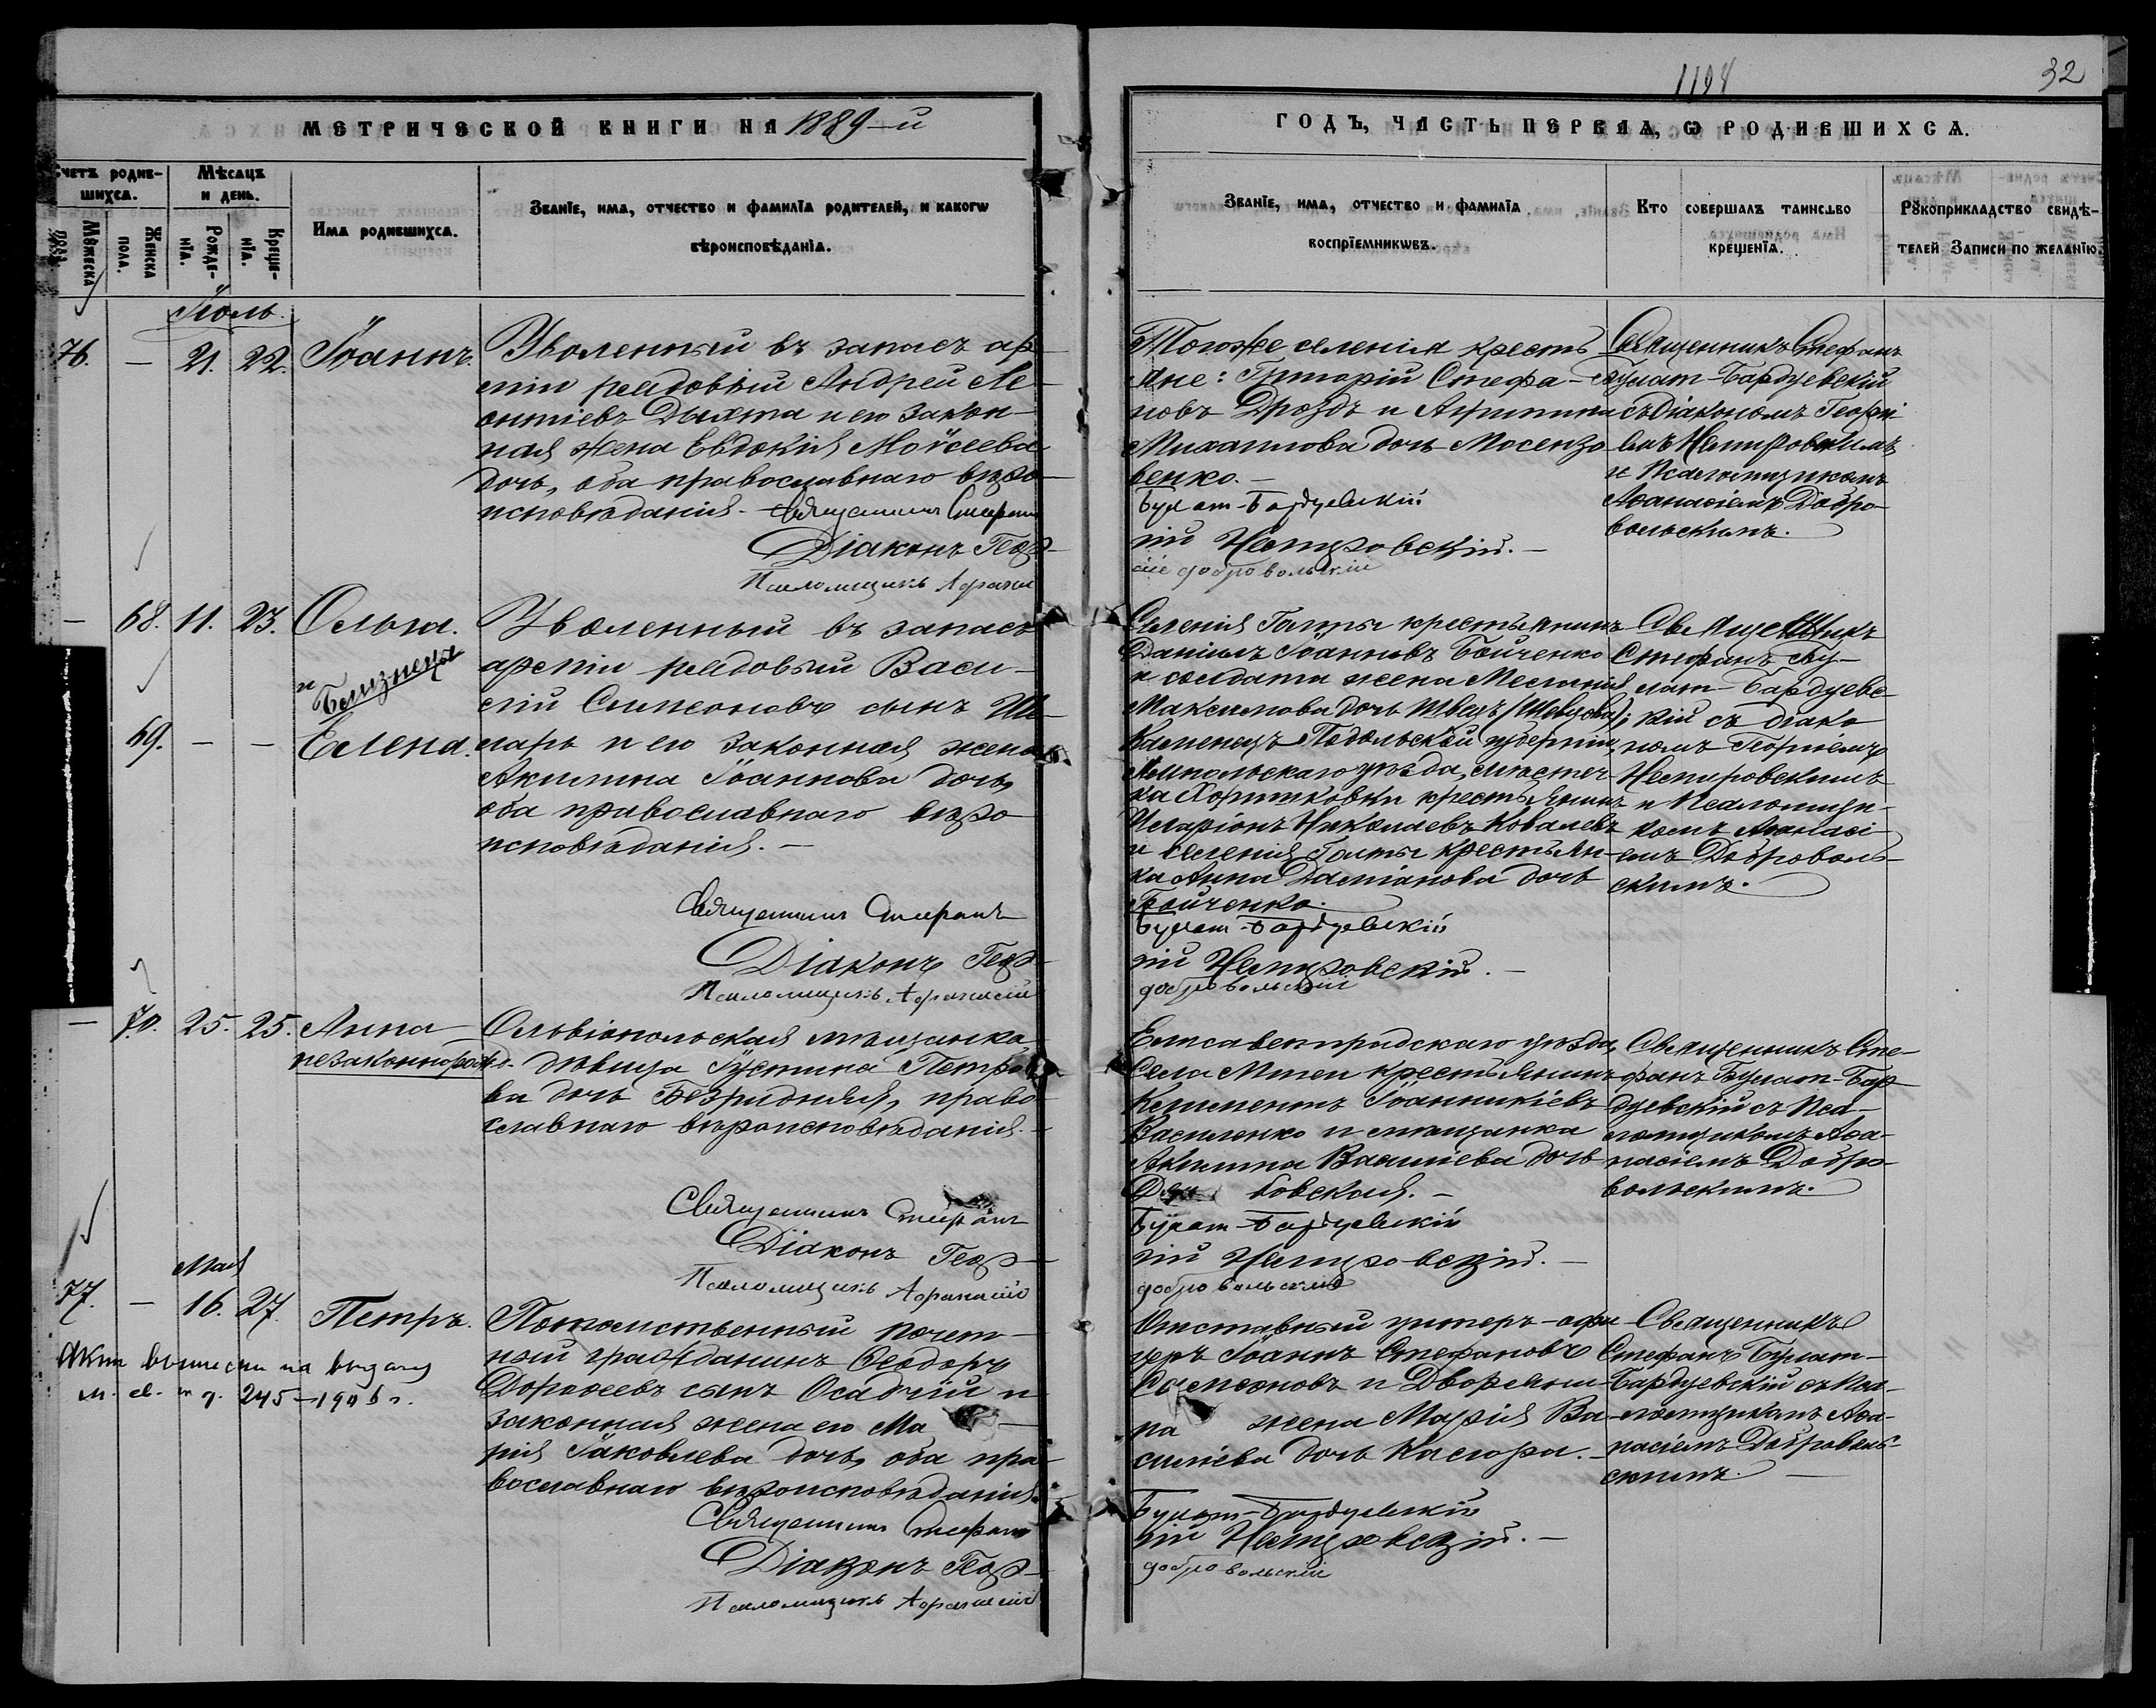 1194
32
МЕТРИЧЕСКОЙ КНИГИ НА 1889-й
ГОДЪ, ЧАСТЬ ПЕРВАЯ, Ѡ РОДИВШИХСѦ.
Счетъ родив-
шихсѧ.
Мѣсѧцъ
и день.
Мꙋжеска
пола.
Женска
пола.
Рожде-
нїѧ.
Креще-
нїѧ.
Имѧ родившихсѧ.
Званїе, имѧ, отчество и фамилїѧ родителей, и какогѡ
вѣроисповѣданїѧ.
Званїе, имѧ, отчество и фамилїѧ
воспрїемникѡвъ.
Кто совершалъ таинство
крещенїѧ.
Рꙋкоприкладство свидѣ-
телей Записи по желанїю.
Іюль.
76. — 21. 22. Іоаннъ.
Уволенный въ запасъ ар-
міи рядовый Андрей Ле-
онтіевъ Дыхта и его закон-
ная жена Евдокія Моѵсеева
дочь, оба православнаго вѣро-
исповѣданія. Священникъ Стефанъ
Діаконъ Геор-
Псаломщикъ Афанас
Тогоже селенія кресть-
яне: Григорій Стефа-
новъ Дроздъ и Агрипина
Михаилова дочь Мосензо
венко.
Булат-Бардуевскій
гій Немировскій.
ій Добровольскій
Священникъ Стефанъ
Булат-Бардуевскій
съ Діакономъ Георгі
емъ Немировскимъ
и Псаломщикомъ
Аѳанасіемъ Добро-
вольскимъ.
— 68. 11. 23. Ольга.
и
Близнецы
69. — — Елена.
Уволенный въ запасъ
арміи рядовый Васи-
лій Симеоновъ сынъ Ше-
ларь и его законная жена
Акилина Іоаннова дочь,
оба православнаго вѣро
исповѣданія.
Священникъ Стефанъ
Діаконъ Геор-
Псаломщикъ Афанасій
Селенія Голты крестьянинъ
Даніилъ Іоанновъ Бойченко
и солдата жена Меланія
Максимова дочь Швецъ (Шевцова);
Каменецъ-Подольской губерніи,
Ямпольскаго уѣзда, местеч-
ка крестьянинъ
Иларіонъ Николаевъ Ковалевъ
и селенія Голты крестьян-
ка Анна Даміанова дочь
Бойченко.
Булат-Бардуевскій
гій Немировскій.
Добровольскій
Священникъ
Стефанъ Бу-
лат-Бардуевс-
кій съ діако
номъ Георгіемъ
Немировскимъ
и Псаломщи-
комъ Аѳанасі-
емъ Доброволь-
скимъ.
— 70. 25. 25. Анна
незаконнорожд.
Ольвіопольская мѣщанка
дѣвица Іустина Петро-
ва дочь Безридняя, право
славнаго вѣроисповѣданія.
Священникъ Стефанъ
Діаконъ Геор-
Псаломщикъ Афанасій
Елисаветградскаго уѣзда,
Села крестьянинъ
Климентъ Іоанникіевъ
Василенко и мѣщанка
Акилина Василіева дочь
ковская.
Булат-Бардуевскій
гій Немировскій.
Добровольскій
Священникъ Сте-
фанъ Булат-Бар-
дуевскій съ Пса-
ломщикомъ Аѳа-
насіемъ Добро-
вольскимъ.
Мая
77. — 16. 27. Петръ.
выписки на выдан
245 — 1906 г.
Потомственный почет-
ный гражданинъ Ѳеодоръ
Дороѳеевъ сынъ Осадчій и
законная жена его Ма
рія Іаковлева дочь, оба пра-
вославнаго вѣроисповѣданія.
Священникъ Стефанъ
Діаконъ Геор-
Псаломщикъ Афанасій
Отставный унтеръ-офи-
церъ Іоаннъ Стефановъ
Самсоновъ и Дворяни-
на жена Марія Ва-
силіева дочь Кисюра.
Булат-Бардуевскій
гій Немировскій.
Добровольскій
Священникъ
Стефанъ Булат-
Бардуевскій съ Пса-
ломщикомъ Аѳа-
насіемъ Доброволь-
скимъ.